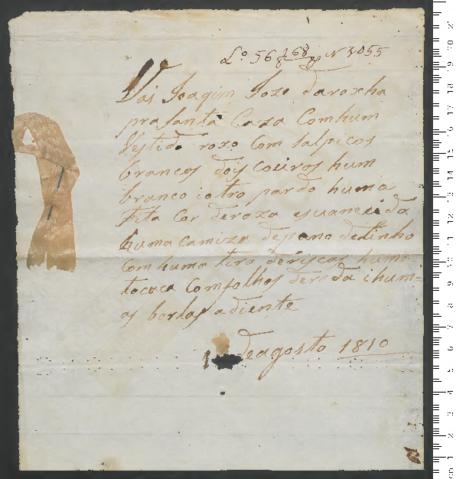 Lº 56 168 N 3055
Vai Joaqim Joze daroxha
pra Santa Caza Comhum
Vestido roxo Com salpicos
brancos dois Coeiros hum
branco iotro pardo huma
fita Cor deroza esvanecida
huma camiza depano delinho
Com huma tira deriscas huma
touca Com folhos derenda ihum
os bordos adiente
deagosto 1810